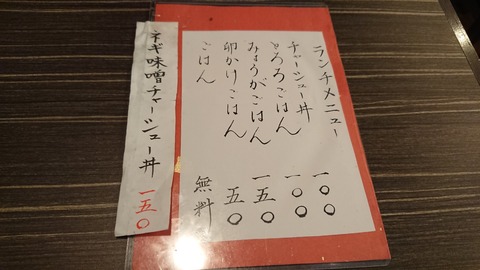 ランチメニュー
チャーシュー丼 一〇〇
とろろごはん 一〇〇
みょうがごはん 一五〇
卵かけごはん 五〇
ごはん 無料
ネギ味噌チャーシュー丼 一五〇